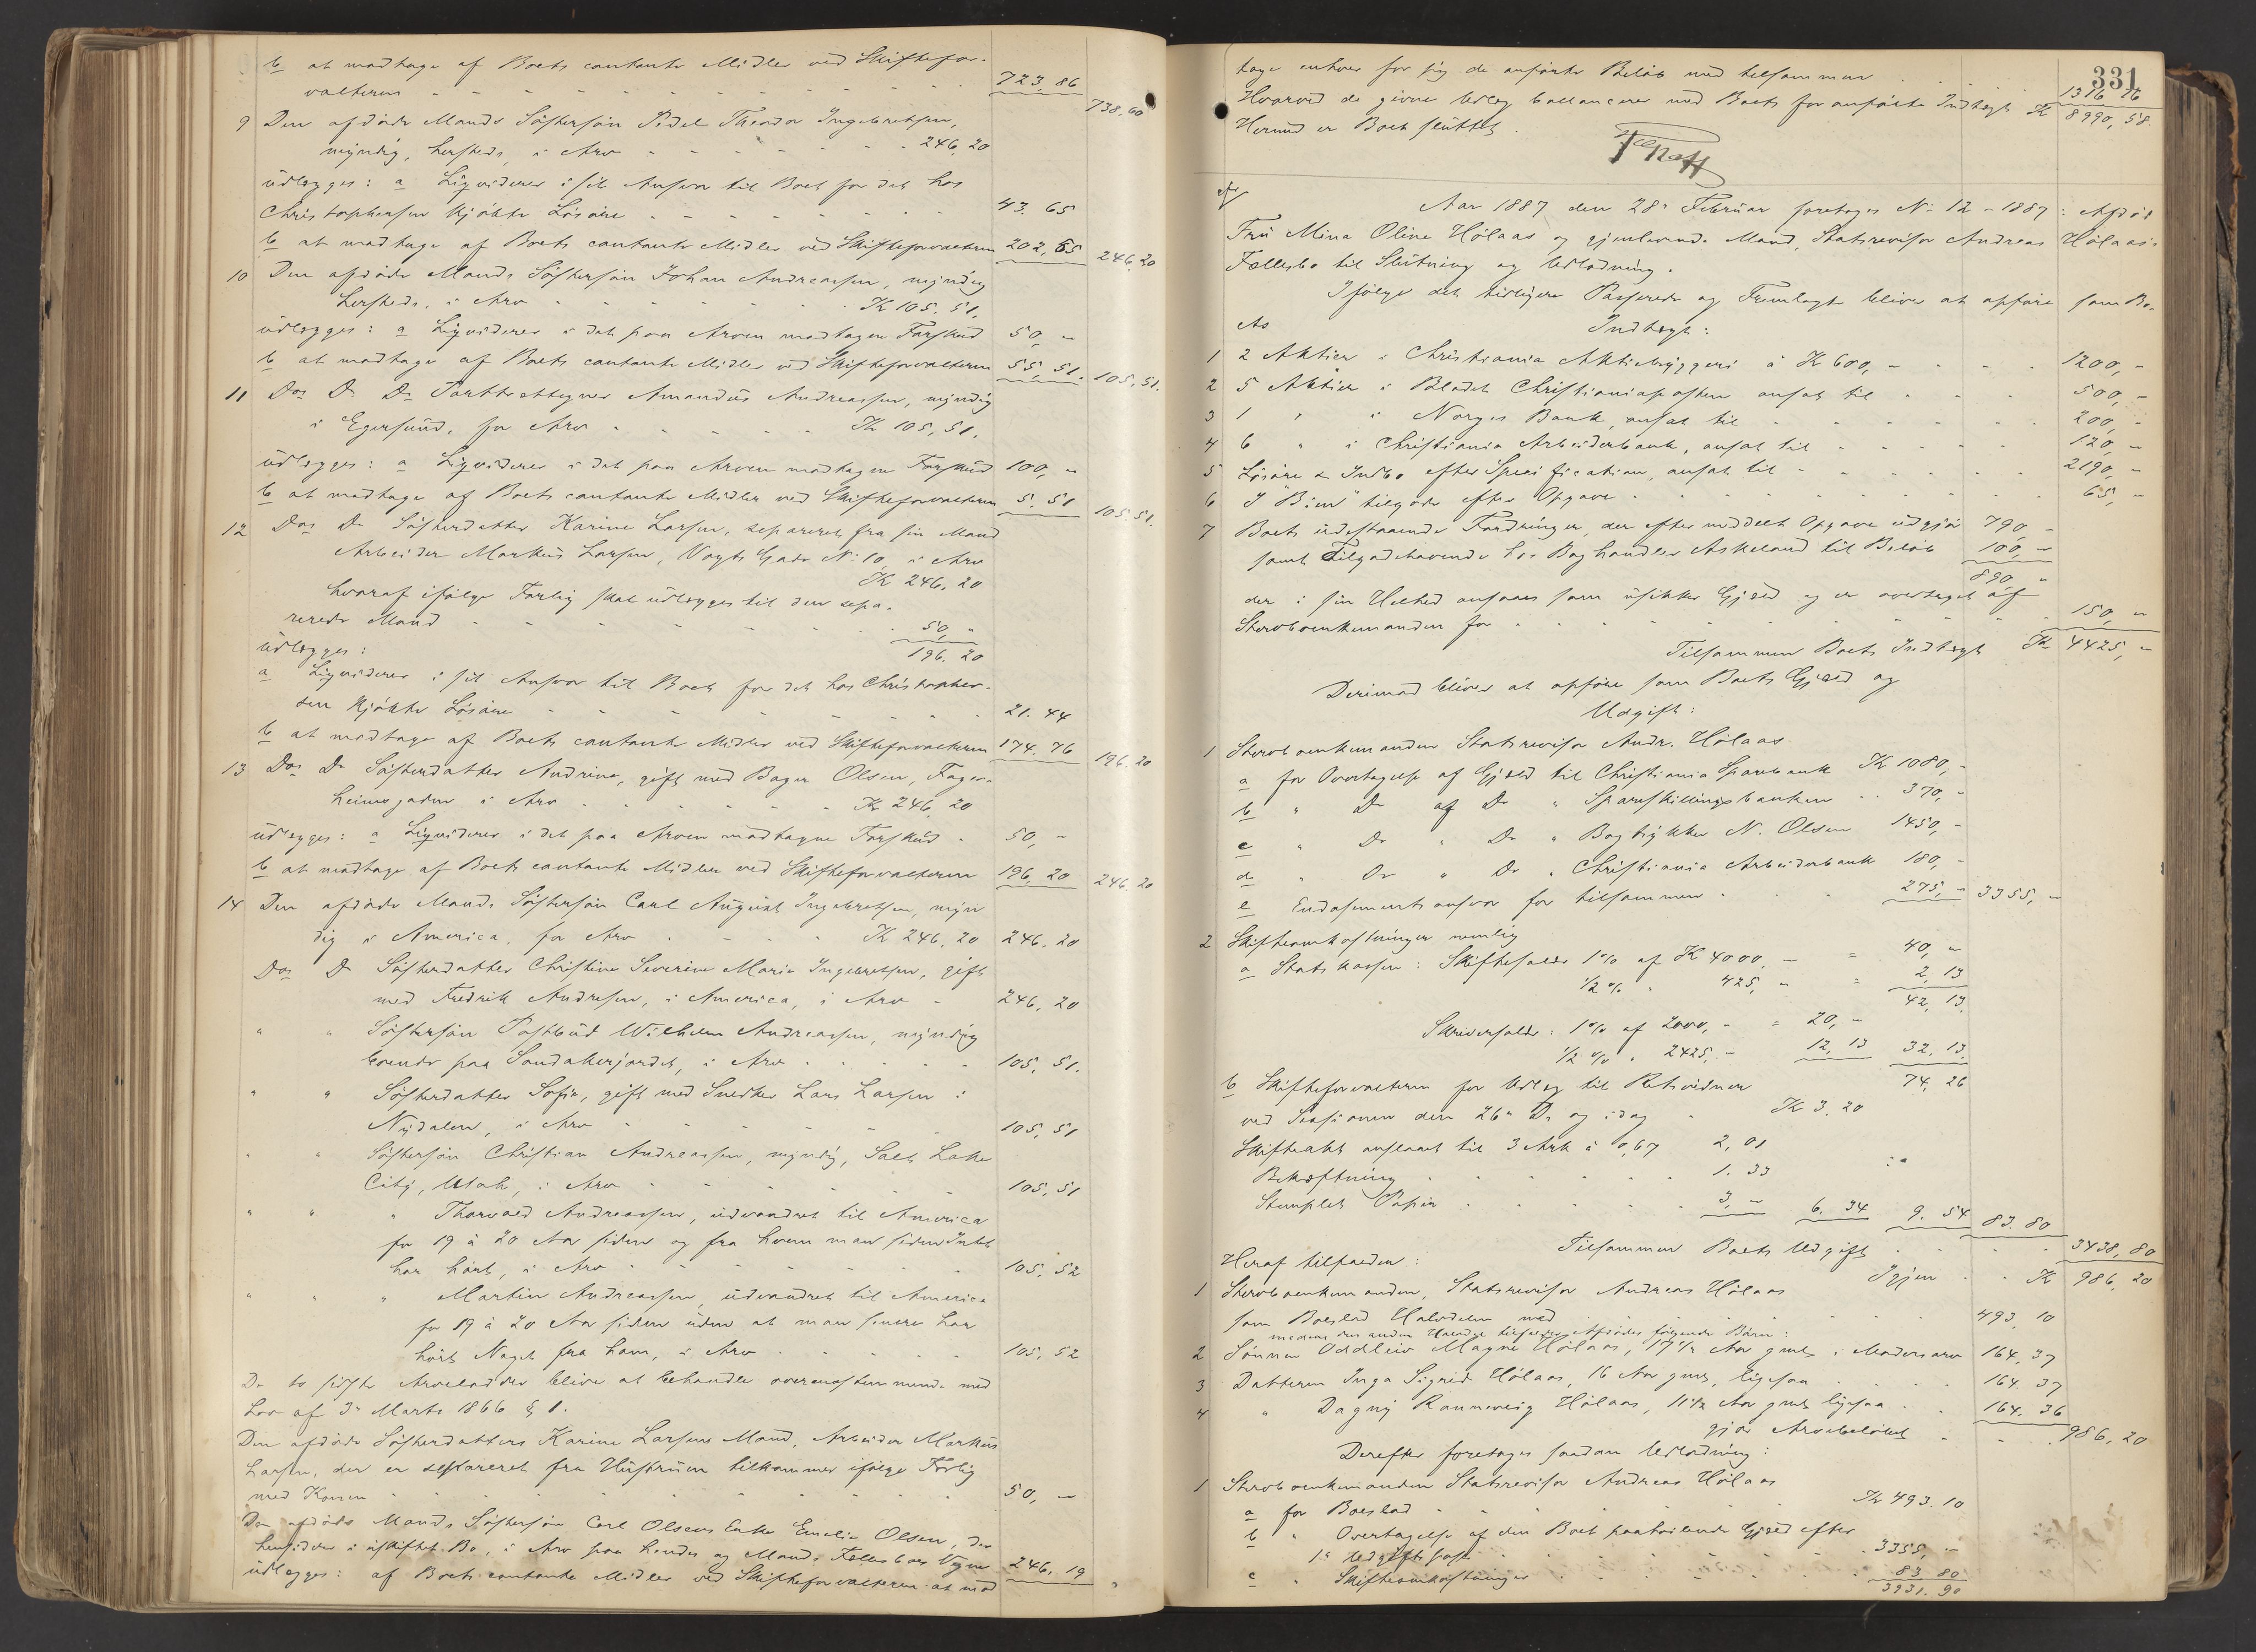 b at modtage af Boets contante Midler ved Skiftefor-
valteren 723,86
738,60
9 Den afdöde Mands Söstersön Pedel Theodor Ingebretsen,
myndig, hersteds, i Arv 246,20
udlægges: a Liqviderer i sit Ansvar til Boet for det hos
Christophersen kjöbte Lösöre 43.65
b at modtage af Boets contante Midler ved Skifteforvalteren 202,55 246,20
10 Den afdöde Mands Söstersön Johan Andreassen, myndig
hersteds, i Arv K 105.51.
udlægges: a Liqviderer i det paa Arven modtagne Forskud 50,"
b at modtage af Boets contante Midler ved Skifteforvalteren 55,51. 105,51.
11 Dos Do Do Amandus Andreassen, myndig
i Egersund, for Arv K 105,51.
udlægges: a Liqviderer i det paa Arven modtagne Forskud 100,"
b at modtage af Boets contante Midler ved Skifteforvalteren 5.51 105.51.
12 Dos Do Sösterdatter Karine Larsen, separeret fra sin Mand
Arbeider Markus Larsen, Vogts Gade No 10, i Arv
K 246.20
hvoraf ifölge Forlig skal udlægges til den sepa-
rerede Mand 50,"
udlægges: 196.20
a Liqviderer i sit Ansvar til Boet for det hos Christopher-
sen kjöbte Lösöre 21.44
b at modtage af Boets contante Midler ved Skifteforvalteren 174.76 196.20
13 Dos Do Sösterdatter Andrine, gift med Bager Olsen, Fager-
heimsgaden i Arv K 246,20
udlægges: a Liqviderer i det paa Arven modtagne Forskud 50,-
b at modtage af Boets contante Midler ved Skifteforvalteren 196,20 246.20
14 Den afdöde Mands Söstersön Carl August Ingebretsen, myn
dig i America, for Arv K 246,20 246.20
Dos Do Sösterdatter Christine Severine Marie Ingebretsen, gift
med Fredrik Andresen, i America, i Arv 246,20
" " Söstersön Postbud Wilhelm Andreassen, myndig
boende paa Sandakerjordet, i Arv 105,51.
" " Sösterdatter Sofie, gift med Snedker Lars Larsen i
Nydalen, i Arv 105,51
" " Söstersön Christian Andreassen, myndig, Salt Lake
City, Utah, i Arv 105,51
" " " Thorvald Andreassen, udvandret til America
for 19 à 20 Aar siden og fra hvem man siden Intet
har hört, i Arv 105,52
" " " Martin Andreassen, udvandret til America
for 19 à 20 Aar siden uden at man senere har
hört Noget fra ham, i Arv 105,52
De to sidste Arvelodder blive at behandle overensstemmende med
Lov af 3e Marts 1866 § 1.
Den afdöde Sösterdatters Karine Larsens Mand, Arbeider Markus
Larsen, der er separeret fra Hustruen tilkommer ifölge Forlig
med Konen 50,"
Den afdöde Mands Söstersön Carl Olsens Enke Emelie Olsen, der
hensidder i uskiftet Bo, i Arv paa hendes og Mands Fællesboes Vegne 246,19
udlægges: af Boets contante Midler ved Skifteforvalteren at mod
331
tage enhver for sig de anförte Belöb med tilsammen 1316 16
Hvorved de givne Udlæg ballancerer med Boets foranförte Indtægt K 8990,58.
Hermed er Boet sluttet.
Aar 1887 den 28e Februar foretoges No 12-1887: Afdöd
Fru Mina Oline Hölaas og gjenlevende Mand, Statsrevisor Andreas Hölaas's
Fællesbo til Slutning og Udlodning.
Ifölge det tidligere Passerede og Fremlagte bliver at opföre som Bo-
ets Indtægt:
1 2 Aktier i Christiania Aktiebryggeri à K 600,- 1200,-
2 5 Aktier i Bladet Christianiaposten ansat til 500,-
3 1 " i Norges Bank, ansat til 200,-
4 6 " i Christiania Arbeiderbank, ansat til 120,-
5 Lösöre & Indbo efter Specification, ansat til 2190,-
6 I "Bien" tilgode efter Opgave 65,-
7 Boets udestaaende Fordringer, der efter meddelt Opgave udgjör 790,-
samt Tilgodehavende hos Boghandler Askeland til Belöb 100,-
890 "
der i sin Helhed ansees som usikker Gjæld og er overtaget af
Stervboenkemanden for 150,"
Tilsammen Boets Indtægt K 4425,"
Derimod bliver at opföre som Boets Gjæld og
Udgift:
1 Stervboenkemanden Statsrevisor Andr. Hölaas
a for Overtagelse af Gjæld til Christiania Sparebank K 1080,-
b " Do af Do " Spareskillingsbanken 370,-
c " Do " Do " Bogtrykker N. Olsen 1450,-
d " Do " Do " Christiania Arbeiderbank 180,-
e Endosementsansvar for tilsammen 275,- 3355,-
2 Skifteomkostninger nemlig
a Statskassen: Skiftesalær 1% af K 4000,- = 40,"
1/2 % " 425," = 2,13
42,13.
Skriversalær: 1% af 2000,- = 20,-
1/2 % " 2425,- 12,13 32,13.
b Skifteforvalteren for Udlæg til Retsvidner 74,26
ved Sessionen den 26e Ds og idag K 3.20
Skifteakt anslaaet til 3 Ark à 0,67 2,01
Bekræftning 1.33
Stemplet Papir 3,- 6.34 9.54 83.80
Tilsammen Boets Udgift 3438,80
Igjen K 986,20
Heraf tilfalder:
1 Stervboenkemanden, Statsrevisor Andreas Hölaas
som Boeslod Halvdelen med 493,10
medens den anden Halvdel tilfalder Afdödes fölgende Börn:
2 Sönnen Oddleiv Magne Hölaas, 17 1/2 Aar gml, i Mödrenarv 164,37
3 Datteren Inga Sigrid Hölaas, 16 Aar gml, ligesaa 164.37
4 " Dagny Rannveig Hölaas, 11 1/2 Aar gml ligesaa 164.36
gjör Arvebelöbet 986,20
Derefter foretoges saadan Udlodning:
1 Stervboenkemanden Statsrevisor Andreas Hölaas
a for Boeslod K 493.10
b " Overtagelse af den Boet paahvilende Gjæld efter
1e Udgiftspost 3355,-
c " Skifteomkostninger 83 80
3931.90